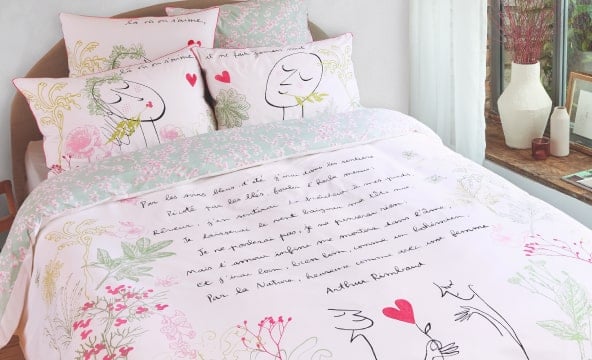 là où on s'aime,
là où on s'aime,
il ne fait jamais nuit
Par les soirs bleus d'été, j'irai dans les sentiers
Picoté par les blés, fouler l'herbe menue :
Rêveur, j'en sentirai la fraîcheur à mes pieds
Je laisserai le vent baigner ma tête nue
Je ne parlerai pas, je ne penserai rien
Mais l'amour infini me montera dans l'âme,
Et j'irai loin, bien loin, comme un bohémien
Par la Nature, heureux comme avec une femme
Arthur Rimbaud